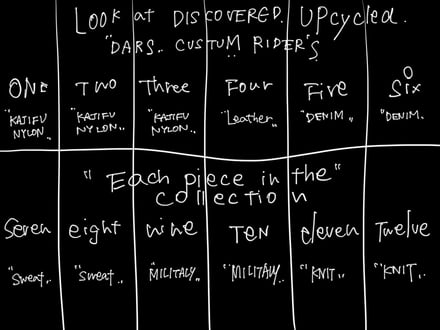 Look at DISCOVERED. UPcycled.
"DARS.. CUSTUM RIDER'S
ONE TWO Three Four Five Six
"KAJIFU NYLON.. "KAJIFU NYLON.. "KAJIFU NYLON.. "Leather.. "DENIM.. "DENIM..
"Each piece in the"
collection
Seven eight nine TEN eleven Twelve
"Sweat.. "Sweat.. "MILITALY.. "MILITALY.. "KNIT.. "KNIT..